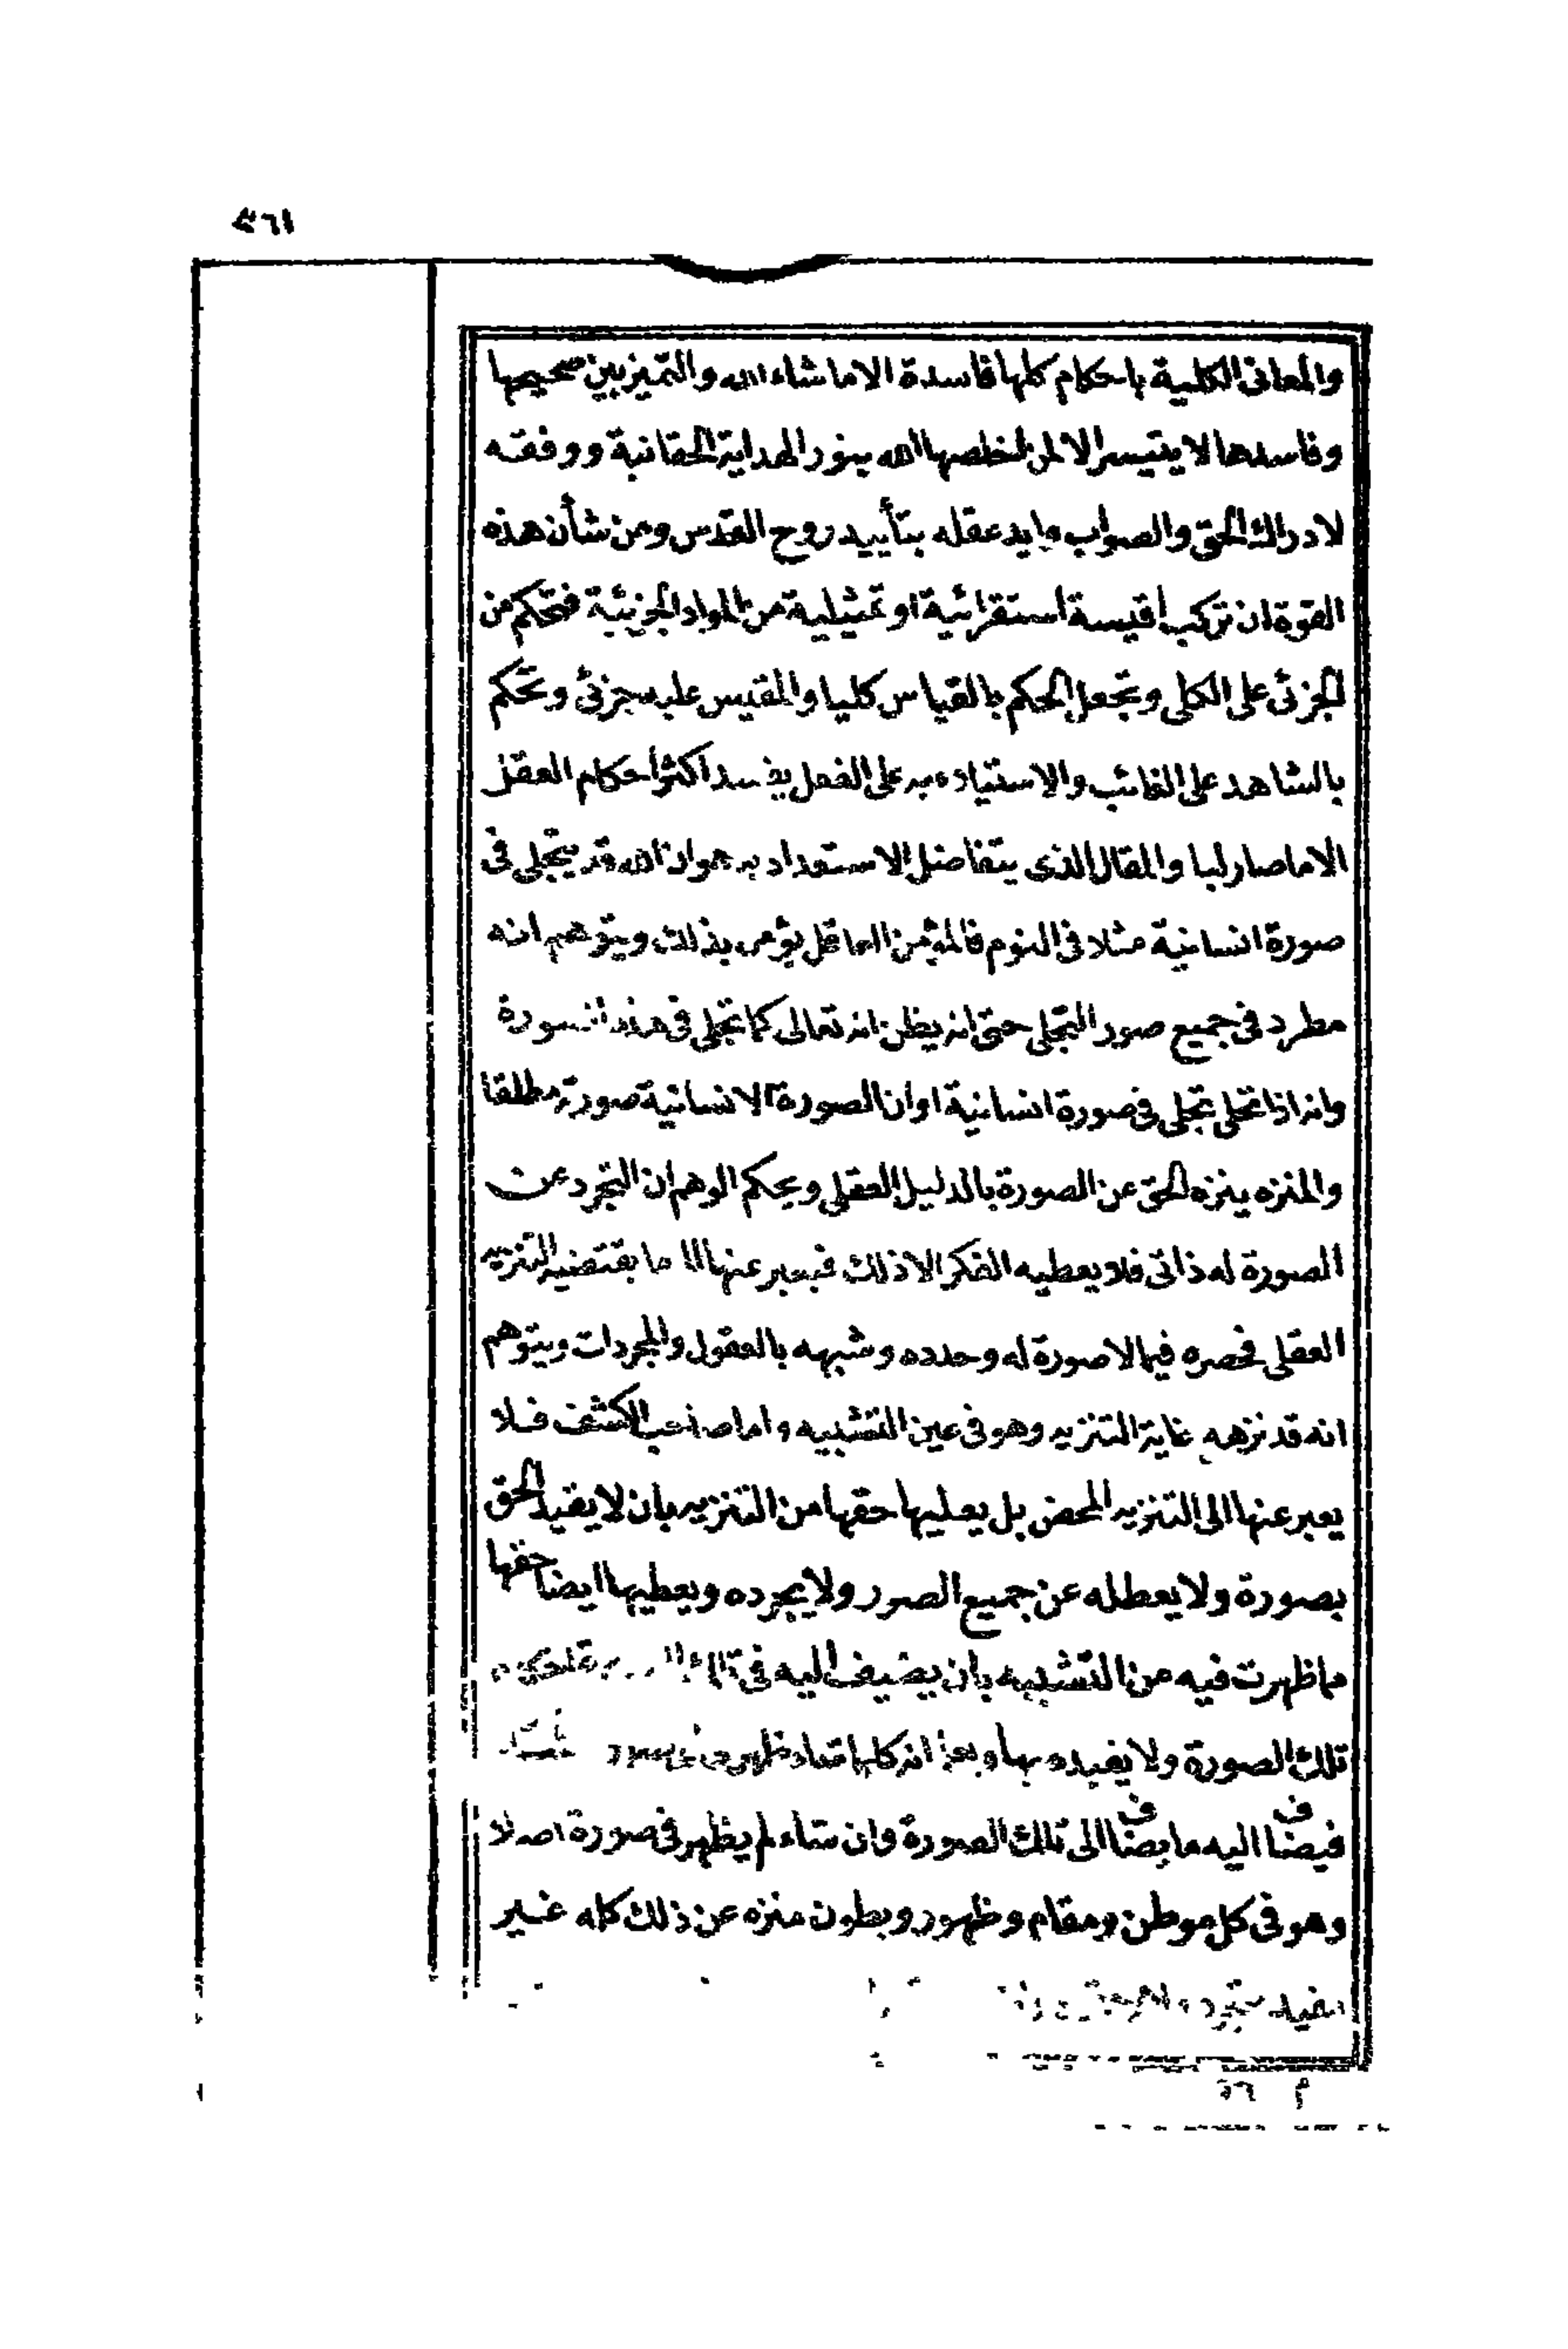 ٣٦١
والمعانى الكلية باحكام كلها فاسدة الا ماشاء الله والتميز بين صحيحها
وفاسدها لا يتيسر الا لمن الله بنور الهداية الحقانية ووفقه
لادراك الحق والصواب وايد عقله بتأييد روح القدس ومن شأن هذه
القوة ان تركب اقيسة استقرائية او تمثيلية من المواد الجزئية فتحكم من
الجزئى على الكلى وتجعل الحكم بالقياس كليا والمقيس عليه جزئى وتحكم
بالشاهد على الغائب على الفعل اكثر احكام العقل
الاماصار لبا والمقال الذى يتفاضل الاستعداد به هو ان الله قد يتجلى فى
صورة انسانية مثلا فى النوم فالمؤمن العاقل يؤمن بذلك ويتوهم انه
مطرد فى جميع صور التجلى حتى انه يظن انه تعالى كما تجلى فى هذه الصورة
وانه اذا تجلى تجلى فى صورة انسانية او ان الصورة الانسانية صورته مطلقا
والمنزه ينزه الحق عن الصورة بالدليل العقلى ويحكم الوهم ان التجرد عن
الصورة له ذاتى فلا يعطيه الفكر الا ذلك فيعبر عنها ما يقتضيه التنزيه
العقلى فحصره فيما لا صورة له وحدده وشبهه بالعقول والمجردات ويتوهم
انه قد نزهه غاية التنزيه وهو فى عين التشبيه واما صاحب الكشف فلا
يعبر عنها الى التنزيه المحض بل يعطيها حقها من التنزيه بان لا يقيد الحق
بصورة ولا يعطله عن جميع الصور ولا يجرده ويعطيها ايضا حقها
مما ظهرت فيه من التشبيه بان يضيف اليه فى تلك
تلك الصورة ولا يقيده بها انه كلما
فيضاف اليه ما يضاف الى تلك الصورة وان شاء لم يظهر فى صورة اصلا
وهو فى كل موطن ومقام وظهور وبطون منزه عن ذلك كله غير
م ٥٦